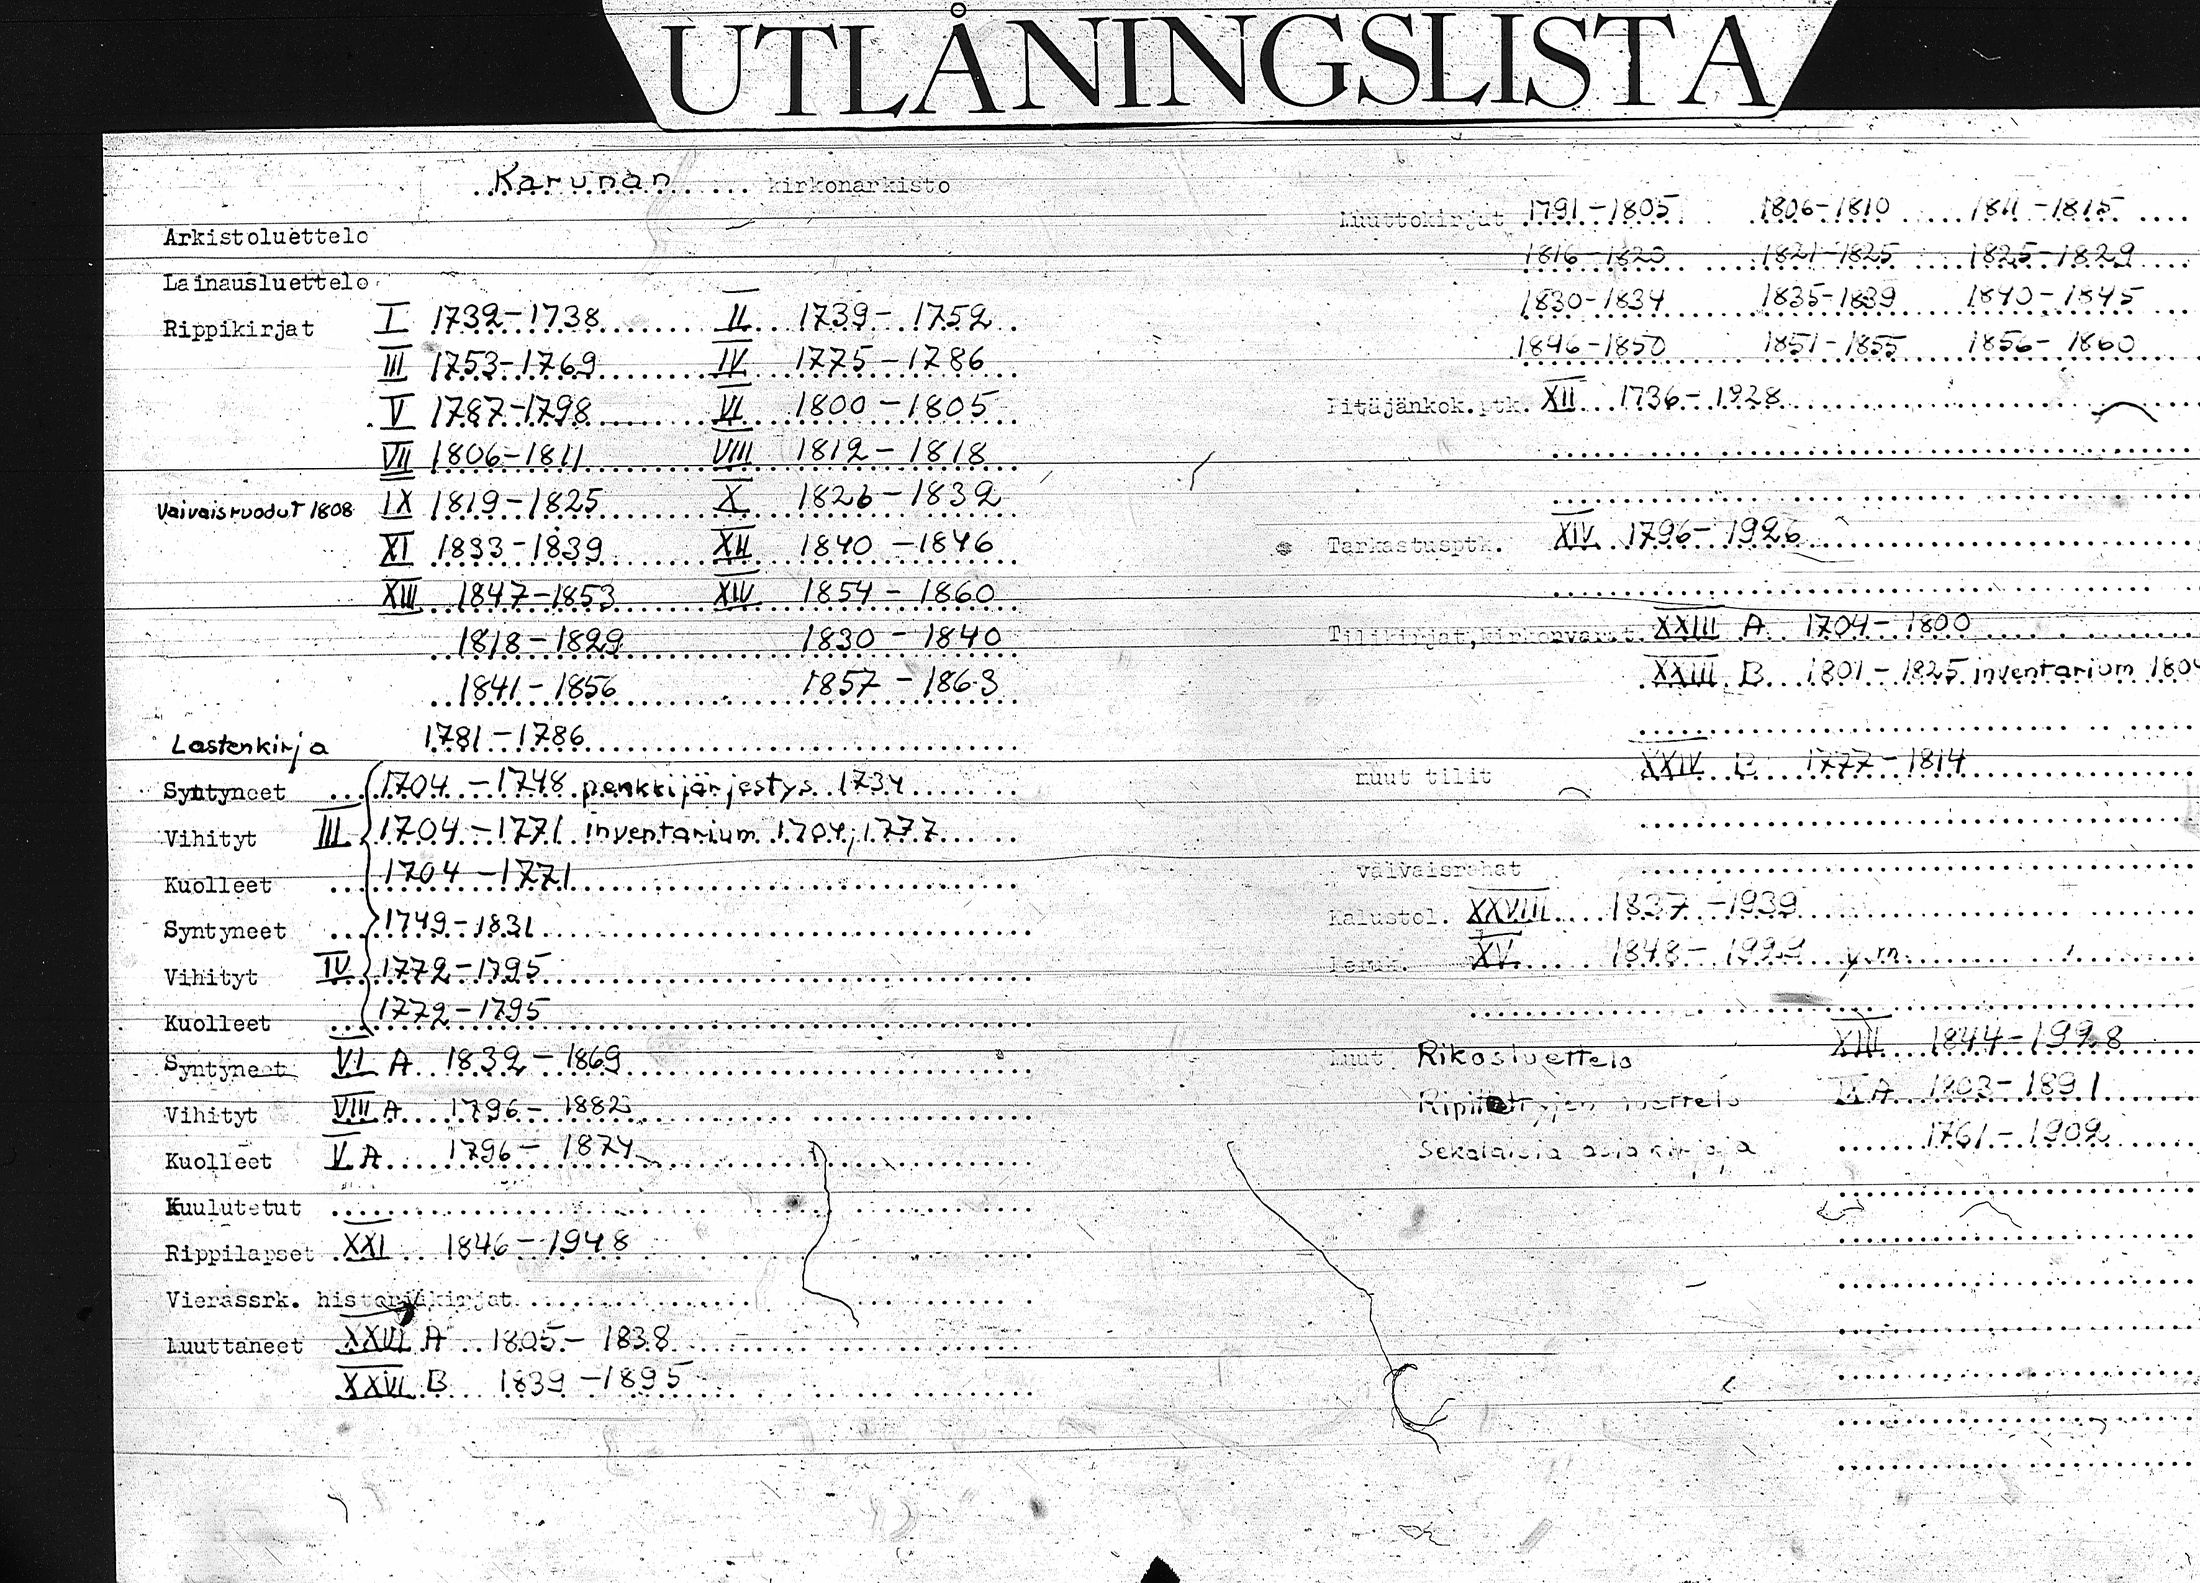 UTLÅNINGSLISTA
Karunan kirkonarkisto
Arkistoluettelo
Lainausluettelo
Rippikirjat I 1732-1738 II 1739-1752
III 1753-1769 IV 1775-1786
V 1787-1798 VI 1800-1805
VII 1806-1811 VIII 1812-1818
Vaivaisruodut 1808 IX 1819-1825 X 1826-1832
XI 1833-1839 XII 1840-1846
XIII 1847-1853 XIV 1854-1860
1818-1829 1830-1840
1841-1856 1857-1863
Lastenkirja 1781-1786
Syntyneet 1704-1748 penkkijärjestys 1734
Vihityt III 1704-1771 inventarium 1704, 1777
Kuolleet 1704-1771
Syntyneet 1749-1831
Vihityt IV 1772-1795
Kuolleet 1772-1795
Syntyneet VI A 1832-1869
Vihityt VIII A 1796-1882
Kuolleet V A 1796-1874
Kuulutetut
Rippilapset XXI 1846-1948
Vierassrk. historiakirjat
Muuttaneet XXVI A 1805-1838
XXVI B 1839-1895
Muuttokirjat 1791-1805 1806-1810 1811-1815
1816-1820 1821-1825 1825-1829
1830-1834 1835-1839 1840-1845
1846-1850 1851-1855 1856-1860
Pitäjänkok.ptk. XII 1736-1928
Tarkastusptk. XIV 1796-1926
Tilikirjat, kirkonvarat XXIII A 1704-1800
XXIII B 1801-1825 inventarium 1804
muut tilit XXIV B 1777-1814
vaivaisrahat
Kalustol. XXVIII 1837-1939
XV 1848- y.m.
Muut Rikosluettelo XIII 1844-1928
luettelo IX A 1803-1891
Sekalaisia asiakirjoja 1761-1902